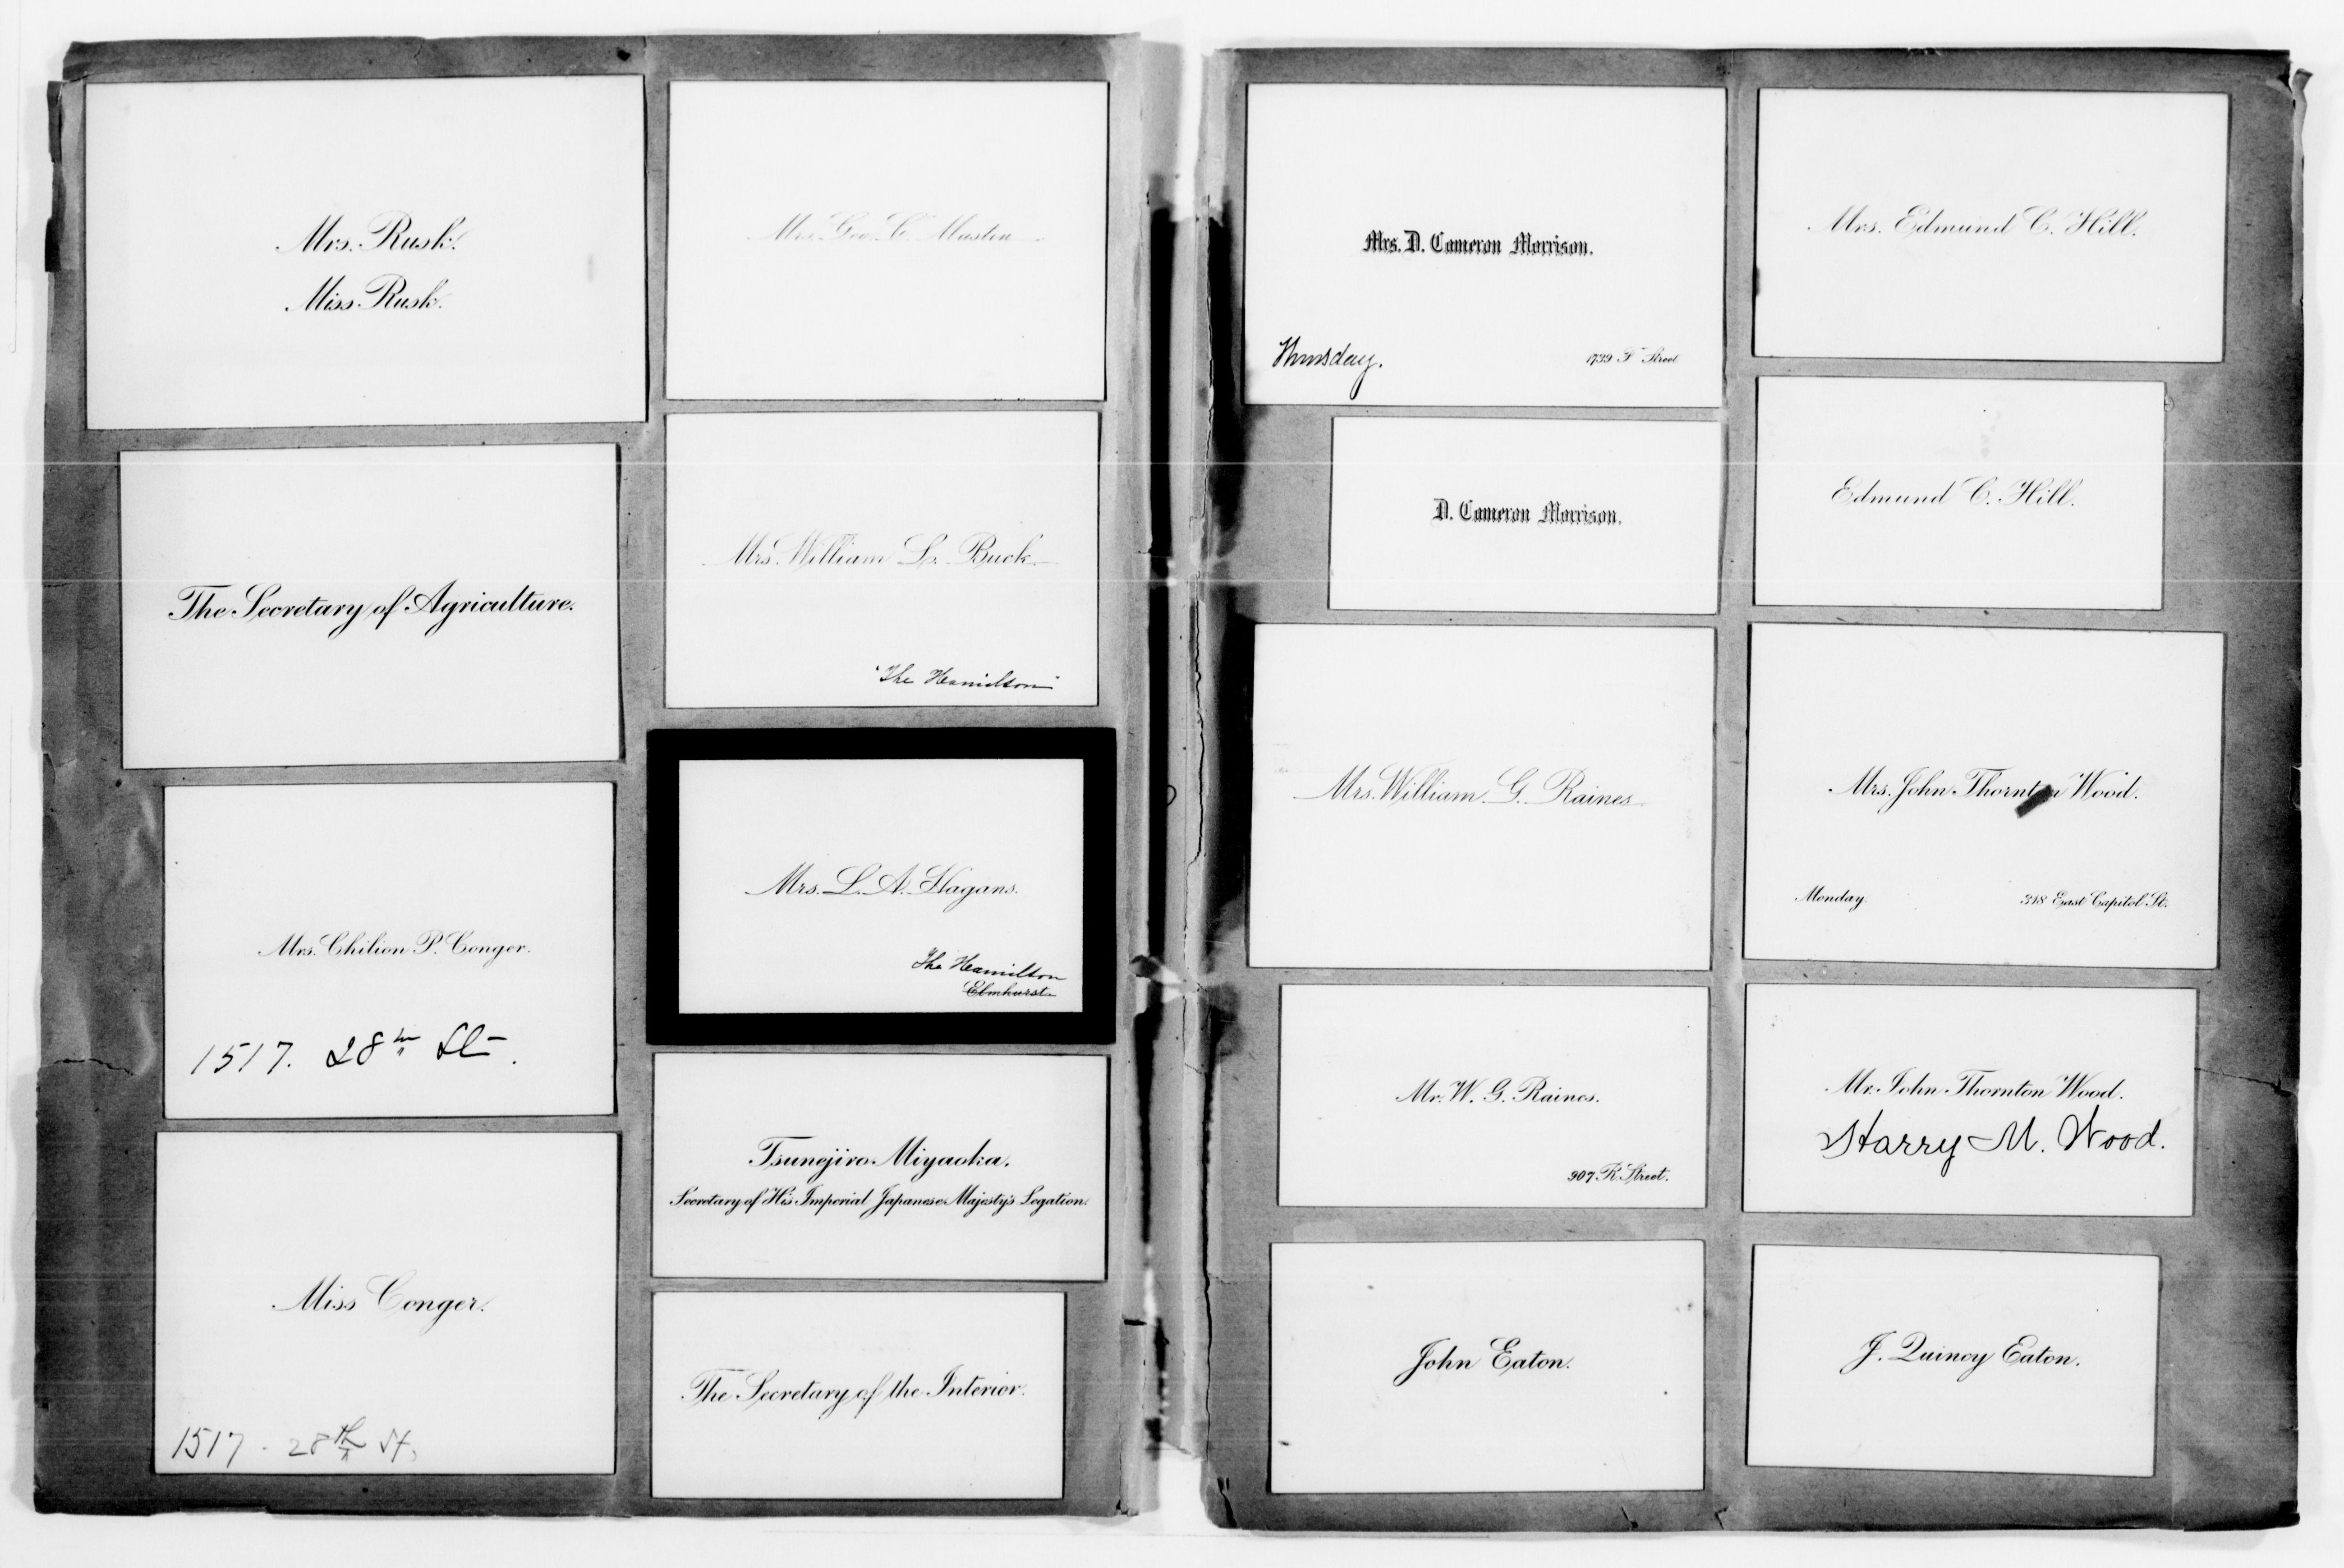 Mrs. Rusk.
Miss Rusk.
The Secretary of Agriculture.
Mrs. Chilion P. Conger.
1517. 28th St.
Miss Conger.
1517 - 28th St.
Mrs. Geo. C.
Mrs. William L. Buck
"The Hamilton"
Mrs. L. A. Hagans.
The Hamilton
Elmhurst.
Tsunejiro Miyaoka.
Secretary of His Imperial Japanese Majesty's Legation.
The Secretary of the Interior.
Mrs. D. Cameron Morrison.
Thursday.
1739 P Street
D. Cameron Morrison.
Mrs. William G. Raines
Mr. W. G. Raines.
907 R Street.
John Eaton.
Mrs. Edmund C. Hill.
Edmund C. Hill.
Mrs. John Thornton Wood.
Monday.
318 East Capitol St.
Mr. John Thornton Wood.
Harry M. Wood.
J. Quincy Eaton.